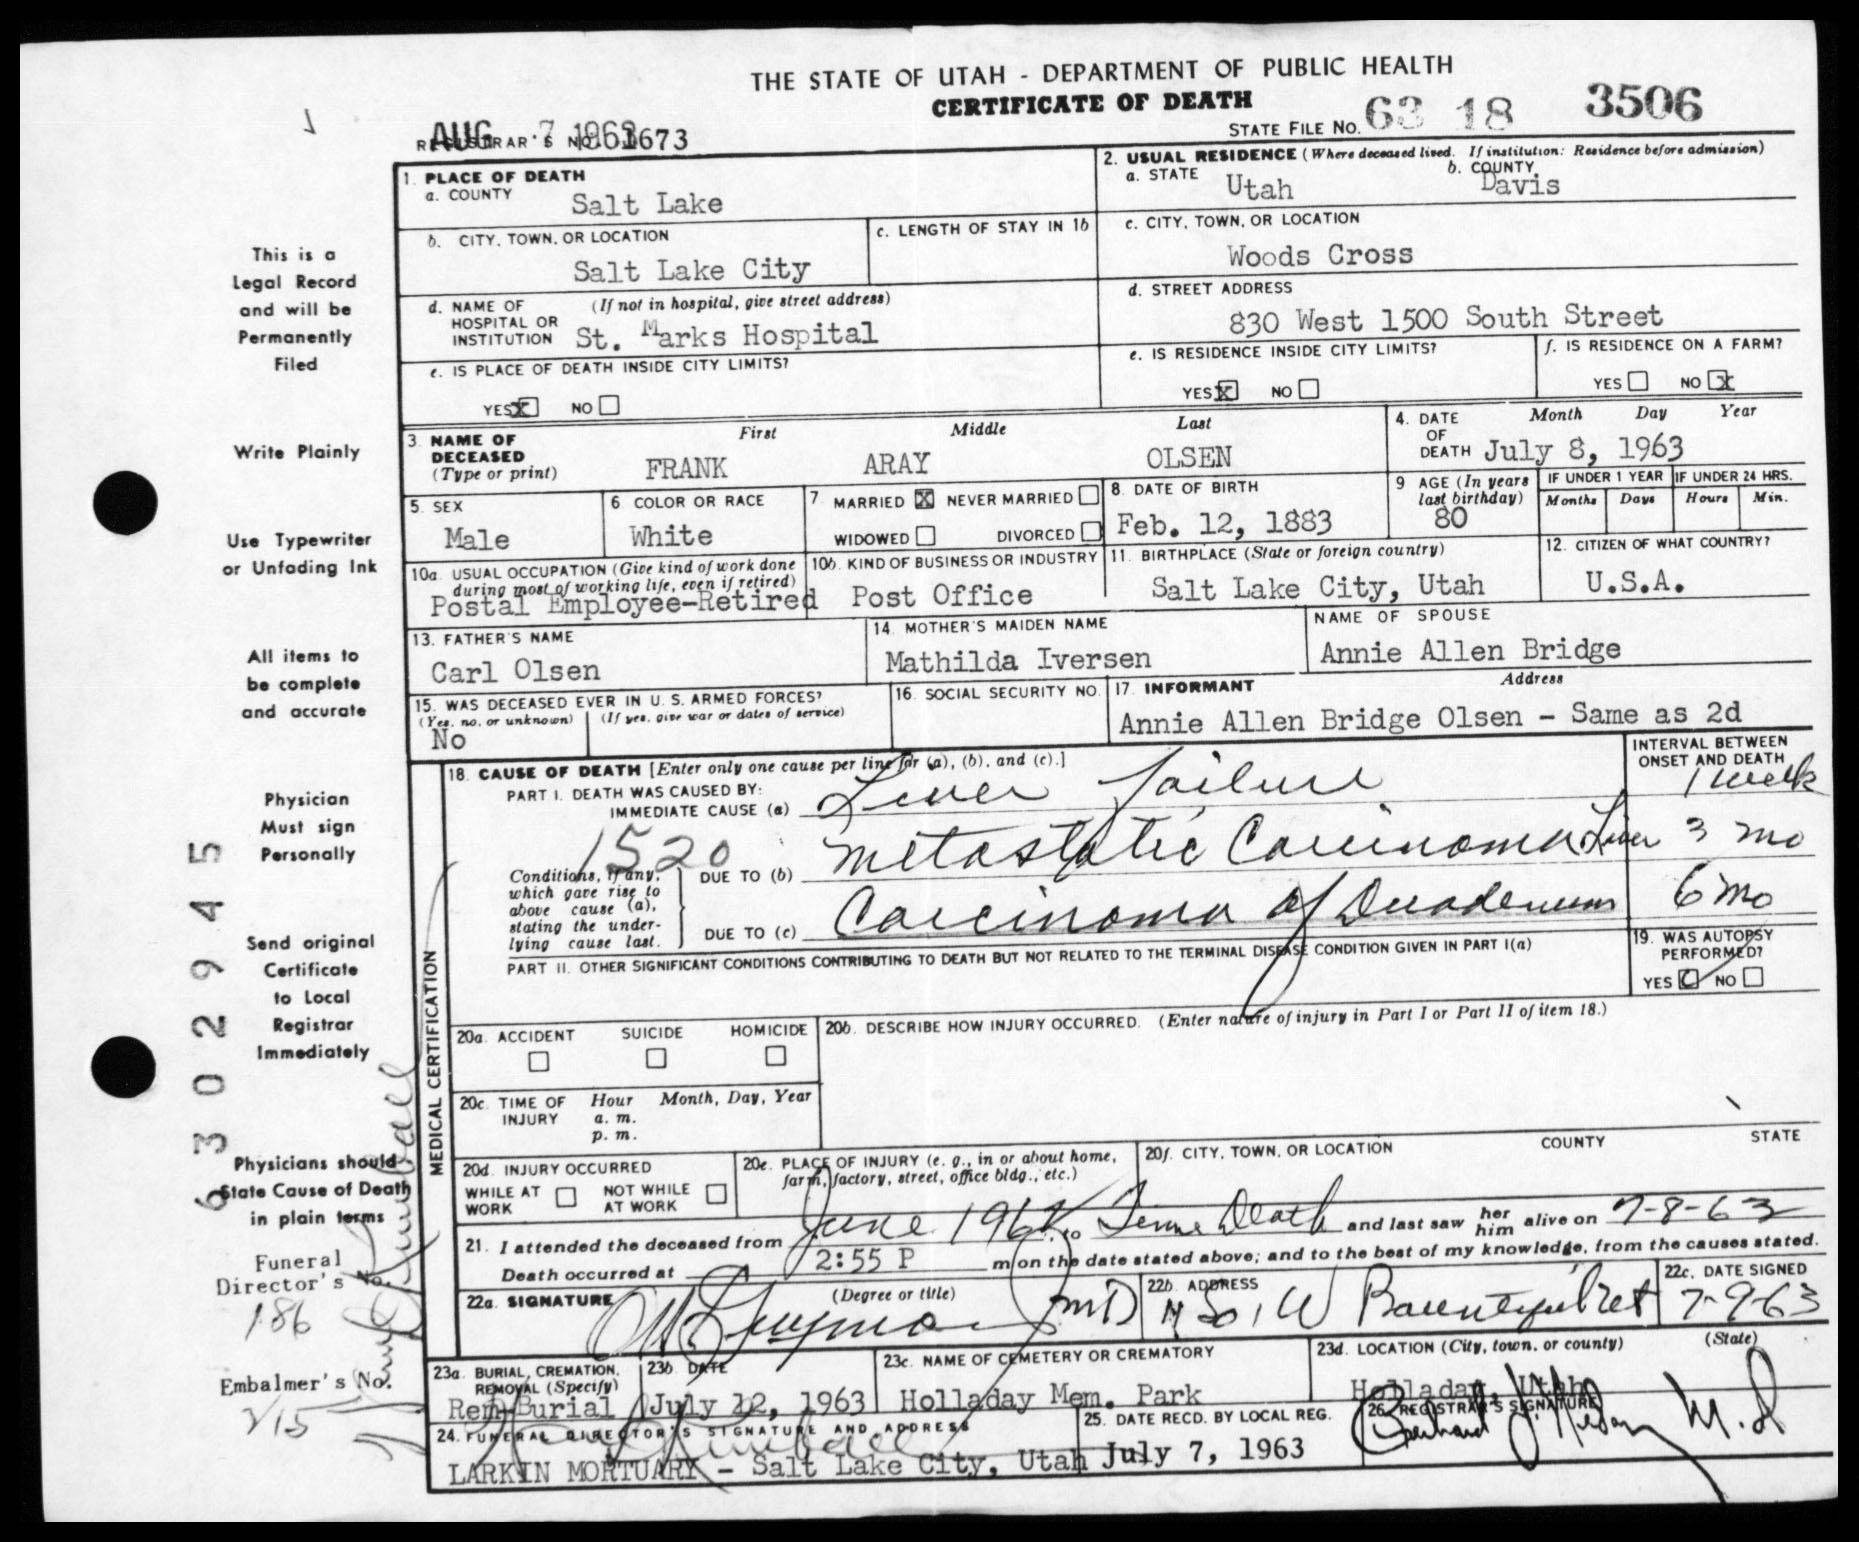 THE STATE OF UTAH - DEPARTMENT OF PUBLIC HEALTH
CERTIFICATE OF DEATH
STATE FILE NO. 63 18 3506
AUG 7 1963
REGISTRAR'S NO. 1673
1. PLACE OF DEATH
a. COUNTY Salt Lake
2. USUAL RESIDENCE (Where deceased lived. If institution: Residence before admission)
a. STATE Utah b. COUNTY Davis
b. CITY, TOWN, OR LOCATION Salt Lake City
c. LENGTH OF STAY IN 1b
c. CITY, TOWN, OR LOCATION
Woods Cross
d. NAME OF HOSPITAL OR INSTITUTION (If not in hospital, give street address)
St. Marks Hospital
d. STREET ADDRESS
830 West 1500 South Street
e. IS PLACE OF DEATH INSIDE CITY LIMITS?
YES X NO
e. IS RESIDENCE INSIDE CITY LIMITS?
YES X NO
f. IS RESIDENCE ON A FARM?
YES NO X
3. NAME OF DECEASED (Type or print)
First Middle Last
FRANK ARAY OLSEN
4. DATE OF DEATH Month Day Year
July 8, 1963
5. SEX
Male
6 COLOR OR RACE
White
7. MARRIED X NEVER MARRIED
WIDOWED DIVORCED
8. DATE OF BIRTH
Feb. 12, 1883
9 AGE (In years last birthday)
80
IF UNDER 1 YEAR IF UNDER 24 HRS.
Months Days Hours Min.
10a. USUAL OCCUPATION (Give kind of work done during most of working life, even if retired)
Postal Employee-Retired
10b. KIND OF BUSINESS OR INDUSTRY
Post Office
11. BIRTHPLACE (State or foreign country)
Salt Lake City, Utah
12. CITIZEN OF WHAT COUNTRY?
U.S.A.
13. FATHER'S NAME
Carl Olsen
14. MOTHER'S MAIDEN NAME
Mathilda Iversen
NAME OF SPOUSE
Annie Allen Bridge
15. WAS DECEASED EVER IN U. S. ARMED FORCES?
(Yes, no, or unknown) (If yes, give war or dates of service)
No
16. SOCIAL SECURITY NO.
17. INFORMANT Address
Annie Allen Bridge Olsen - Same as 2d
MEDICAL CERTIFICATION
18. CAUSE OF DEATH [Enter only one cause per line for (a), (b), and (c).]
INTERVAL BETWEEN ONSET AND DEATH
PART I. DEATH WAS CAUSED BY:
IMMEDIATE CAUSE (a) Liver Failure 1 week
1520
Conditions, if any, which gave rise to above cause (a), stating the underlying cause last.
DUE TO (b) Metastatic Carcinoma Liver 3 mo
DUE TO (c) Carcinoma of Duodenum 6 mo
PART II. OTHER SIGNIFICANT CONDITIONS CONTRIBUTING TO DEATH BUT NOT RELATED TO THE TERMINAL DISEASE CONDITION GIVEN IN PART I(a)
19. WAS AUTOPSY PERFORMED?
YES NO
20a. ACCIDENT SUICIDE HOMICIDE
20b. DESCRIBE HOW INJURY OCCURRED. (Enter nature of injury in Part I or Part II of item 18.)
20c. TIME OF INJURY Hour Month, Day, Year
a. m.
p. m.
20d. INJURY OCCURRED
WHILE AT WORK NOT WHILE AT WORK
20e. PLACE OF INJURY (e. g., in or about home, farm, factory, street, office bldg., etc.)
20f. CITY, TOWN, OR LOCATION COUNTY STATE
21. I attended the deceased from June 1962 to Time Death and last saw her him alive on 7-8-63
Death occurred at 2:55 P m on the date stated above; and to the best of my knowledge, from the causes stated.
22a. SIGNATURE (Degree or title)
MD
22b. ADDRESS
22c. DATE SIGNED
7-9-63
23a. BURIAL, CREMATION, REMOVAL (Specify)
Rem-Burial
23b. DATE
July 12, 1963
23c. NAME OF CEMETERY OR CREMATORY
Holladay Mem. Park
23d. LOCATION (City, town, or county) (State)
Holladay, Utah
24. FUNERAL DIRECTOR'S SIGNATURE AND ADDRESS
LARKIN MORTUARY - Salt Lake City, Utah
25. DATE RECD. BY LOCAL REG.
July 7, 1963
26. REGISTRAR'S SIGNATURE
M.D
This is a
Legal Record
and will be
Permanently
Filed
Write Plainly
Use Typewriter
or Unfading Ink
All items to
be complete
and accurate
Physician
Must sign
Personally
Send original
Certificate
to Local
Registrar
Immediately
Physicians should
State Cause of Death
in plain terms
Funeral
Director's No.
186
Embalmer's No.
6302945